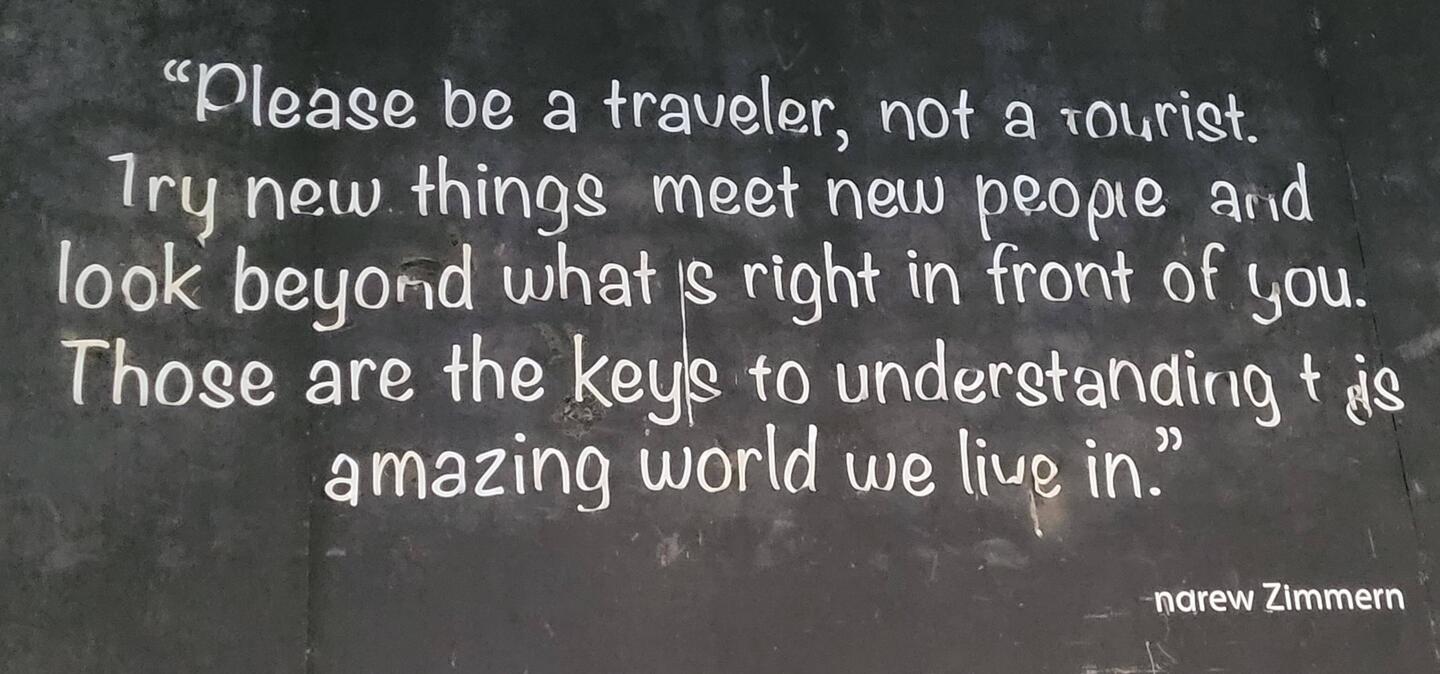 “Please be a traveler, not a tourist.
Try new things meet new people and
look beyond what is right in front of you.
Those are the keys to understanding t is
amazing world we live in.”
ndrew Zimmern